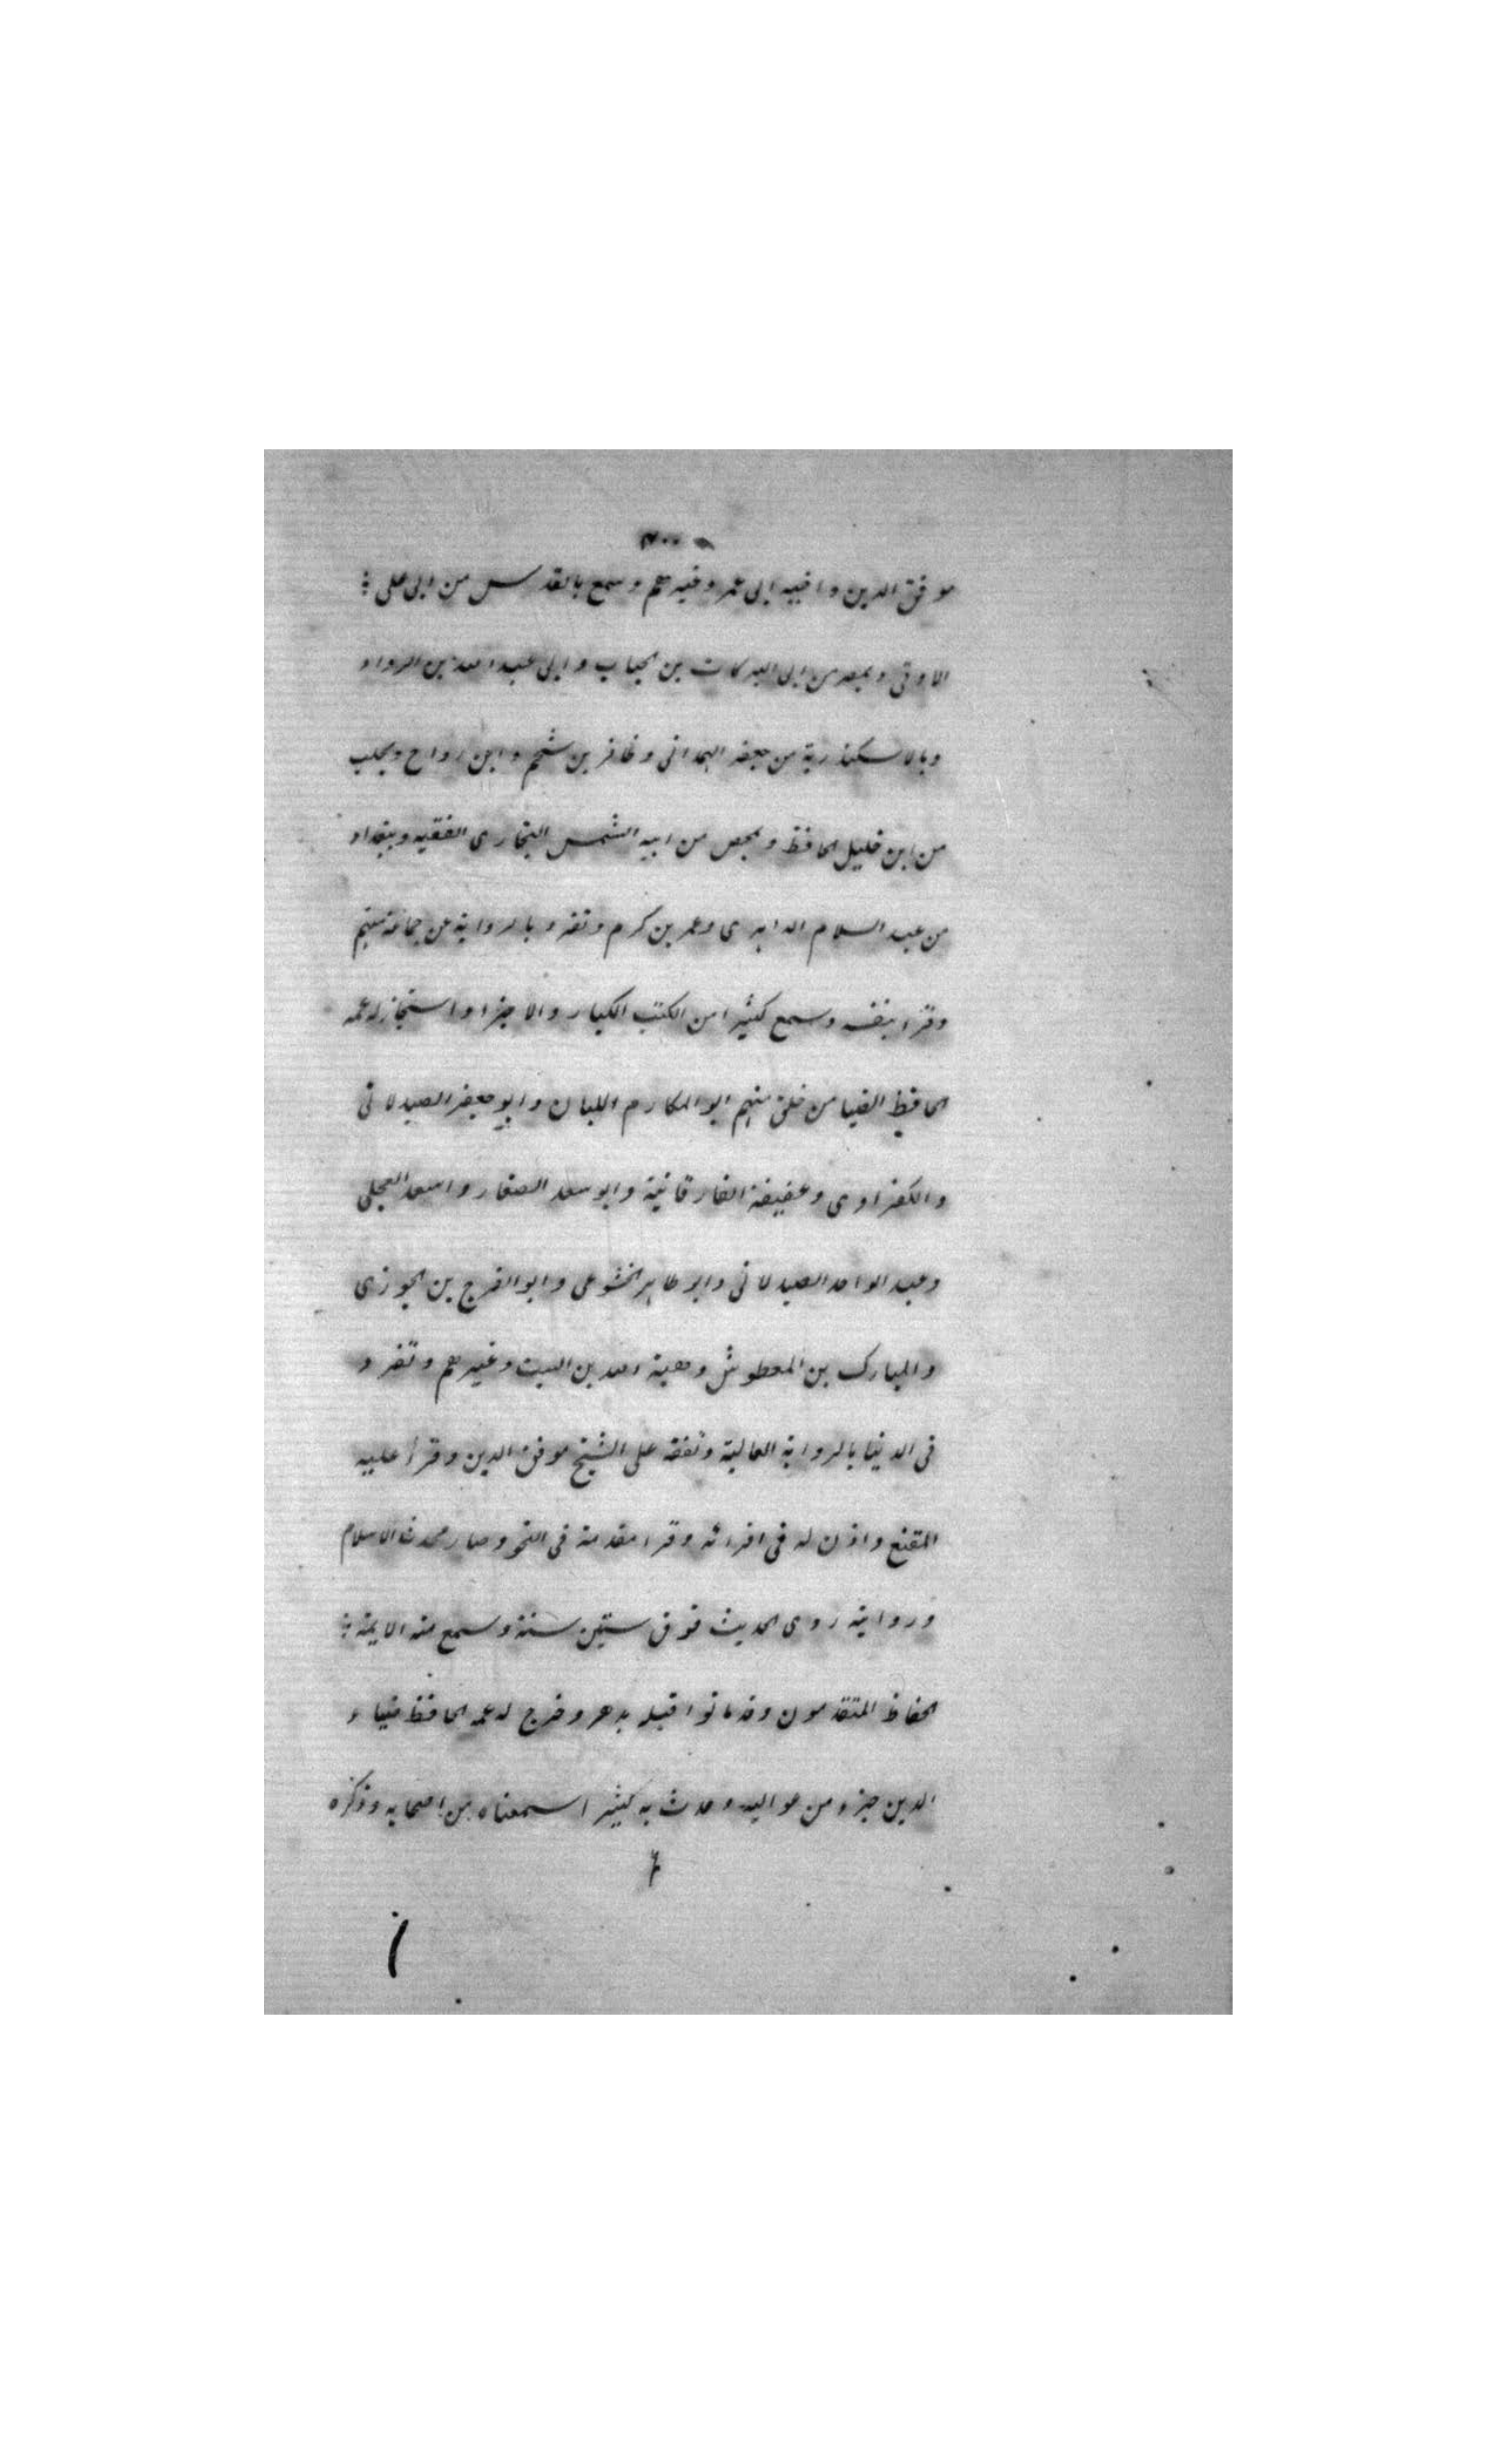 موفق الدين واخيه ابى عمر وغيرهم وسمع بالقدس من ابى على :
الاوقى وبمصر من ابى البركات بن الحباب وابى عبد الله بن الرواد
وبالاسكندرية من جعفر الهمدانى وظافر بن شحم وابن رواح وبحلب
من ابن خليل الحافظ وبحمص من ابيه الشمس البخارى الفقيه وببغداد
من عبد السلام الداهرى وعمر بن كرم وتفرد بالرواية عن جماعة منهم
وقرا بنفسه وسمع كثيرا من الكتب الكبار والاجزا واستجاز له عمه
الحافظ الضيا من خلق منهم ابو المكارم اللبان وابو جعفر الصيدلانى
والكفراوى وعفيفة الفارقانية وابو سعد الصفار واسعد العجلى
وعبد الواحد الصيدلانى وابو طاهر الخشوعى وابو الفرج بن الجوزى
والمبارك بن المعطوش وهبة الله بن السبت وغيرهم وتفرد
فى الدنيا بالرواية العالية وتفقه على الشيخ موفق الدين وقرأ عليه
المقنع واذن له فى اقرائه وقرا مقدمة فى النحو وصار محدث الاسلام
وروايته روى الحديث فوق ستين سنة وسمع منه الايمة :
الحفاظ المتقدمون وقد ماتوا قبله بدهر وخرج له عمه الحافظ ضياء
الدين جزء من عواليه وحدث به كثيرا سمعناه من اصحابه وذكره